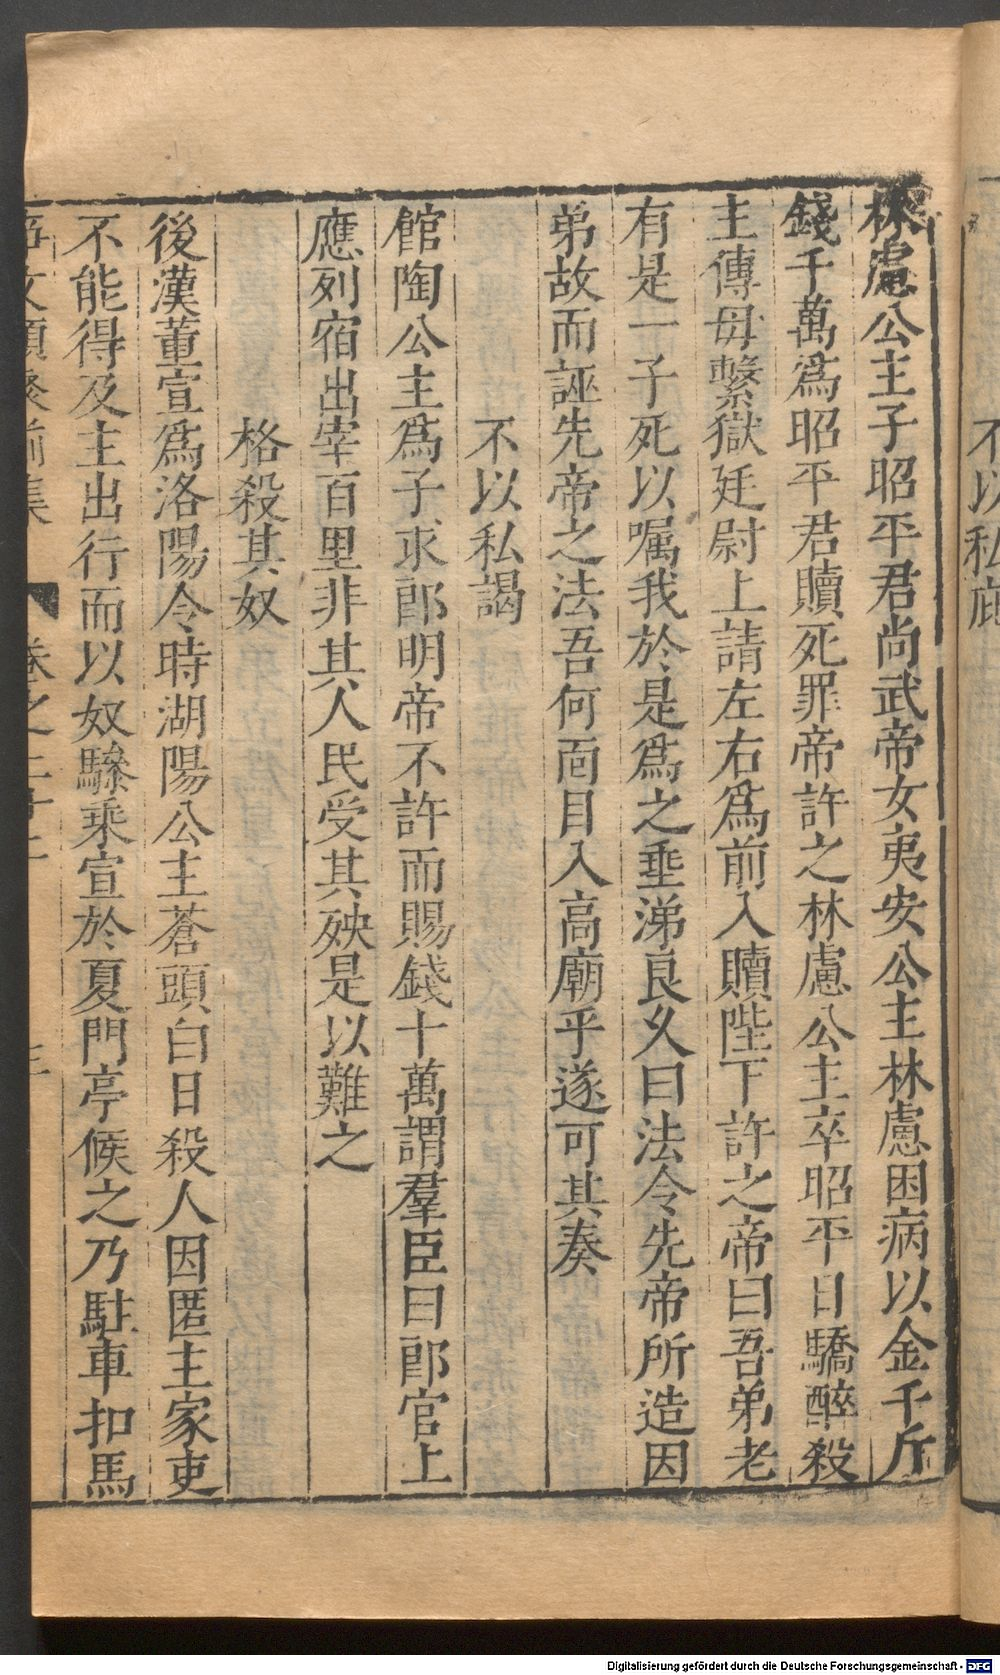 不以私庇
林慮公主子昭平君尚武帝女夷安公主林慮困病以金千斤
錢千萬爲昭平君贖死罪帝許之林慮公主卒昭平日驕醉殺
主傅母繫獄廷尉上請左右爲前入贖陛下許之帝曰吾弟老
有是一子死以囑我於是爲之垂涕良久曰法令先帝所造因
弟故而誣先帝之法吾何面目入高廟乎遂可其奏
不以私謁
館陶公主爲子求郎明帝不許而賜錢十萬謂羣臣曰郎官上
應列宿出宰百里非其人民受其殃是以難之
格殺其奴
後漢董宣爲洛陽令時湖陽公主蒼頭白日殺人因匿主家吏
不能得及主出行而以奴驂乘宣於夏門亭候之乃駐車扣馬
事文類聚前集 卷之二十二 三
Digitalisierung gefördert durch die Deutsche Forschungsgemeinschaft - DFG